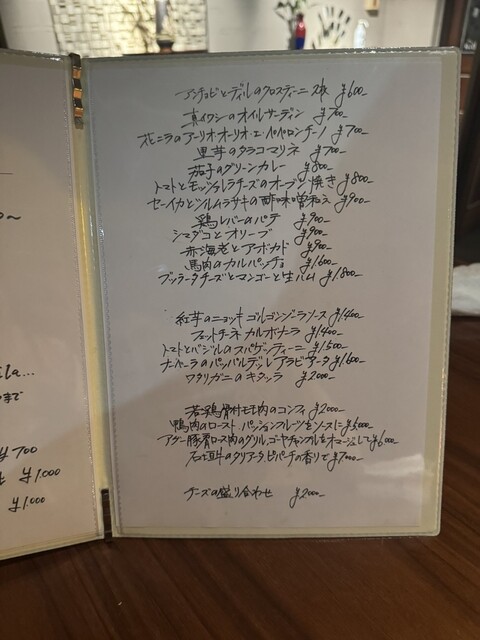 〜
la...
まで
¥700
¥1,000
¥1,000
アンチョビとディルのクロスティーニ 2枚 ¥600-
真イワシのオイルサーディン ¥700-
花ニラのアーリオ・オーリオ・エ・ペペロンチーノ ¥700-
里芋のタラコマリネ ¥700-
茄子のグリーンカレー ¥800-
トマトとモッツァレラチーズのオーブン焼き ¥800-
セーイカとツルムラサキの酢味噌和え ¥900-
鶏レバーのパテ ¥900-
シマダコとオリーブ ¥900-
赤海老とアボカド ¥900-
馬肉のカルパッチョ ¥1,600-
ブッラータチーズとマンゴーと生ハム ¥1,800-
紅芋のニョッキ ゴルゴンゾーラソース ¥1,400-
フェットチーネ カルボナーラ ¥1,400-
トマトとバジルのスパゲッティーニ ¥1,500-
ナーベーラのパッパルデッレ アラビアータ ¥1,600-
ワタリガニのキタッラ ¥2,000-
若鶏骨付モモ肉のコンフィ ¥2,000-
鴨肉のロースト、パッションフルーツをソースに ¥5,000-
アグー豚肩ロース肉のグリル、ゴーヤチャンプルをオマージュして ¥6,000-
石垣牛のタリアータ、ピパーチの香りで ¥7,000-
チーズの盛り合わせ ¥2,000-